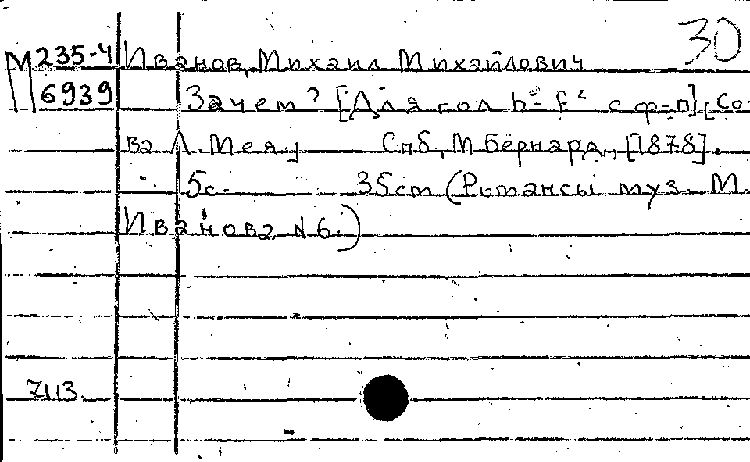 30
М 235-4 Иванов, Михаил Михайлович
6939 Зачем? [Для гол h¹- f² с ф-п] [Сло
ва Л. Мея] Спб, М. Бернард, [1878].
5с. 35cm (Романсы муз. М.
Иванова N 6.)
7113.